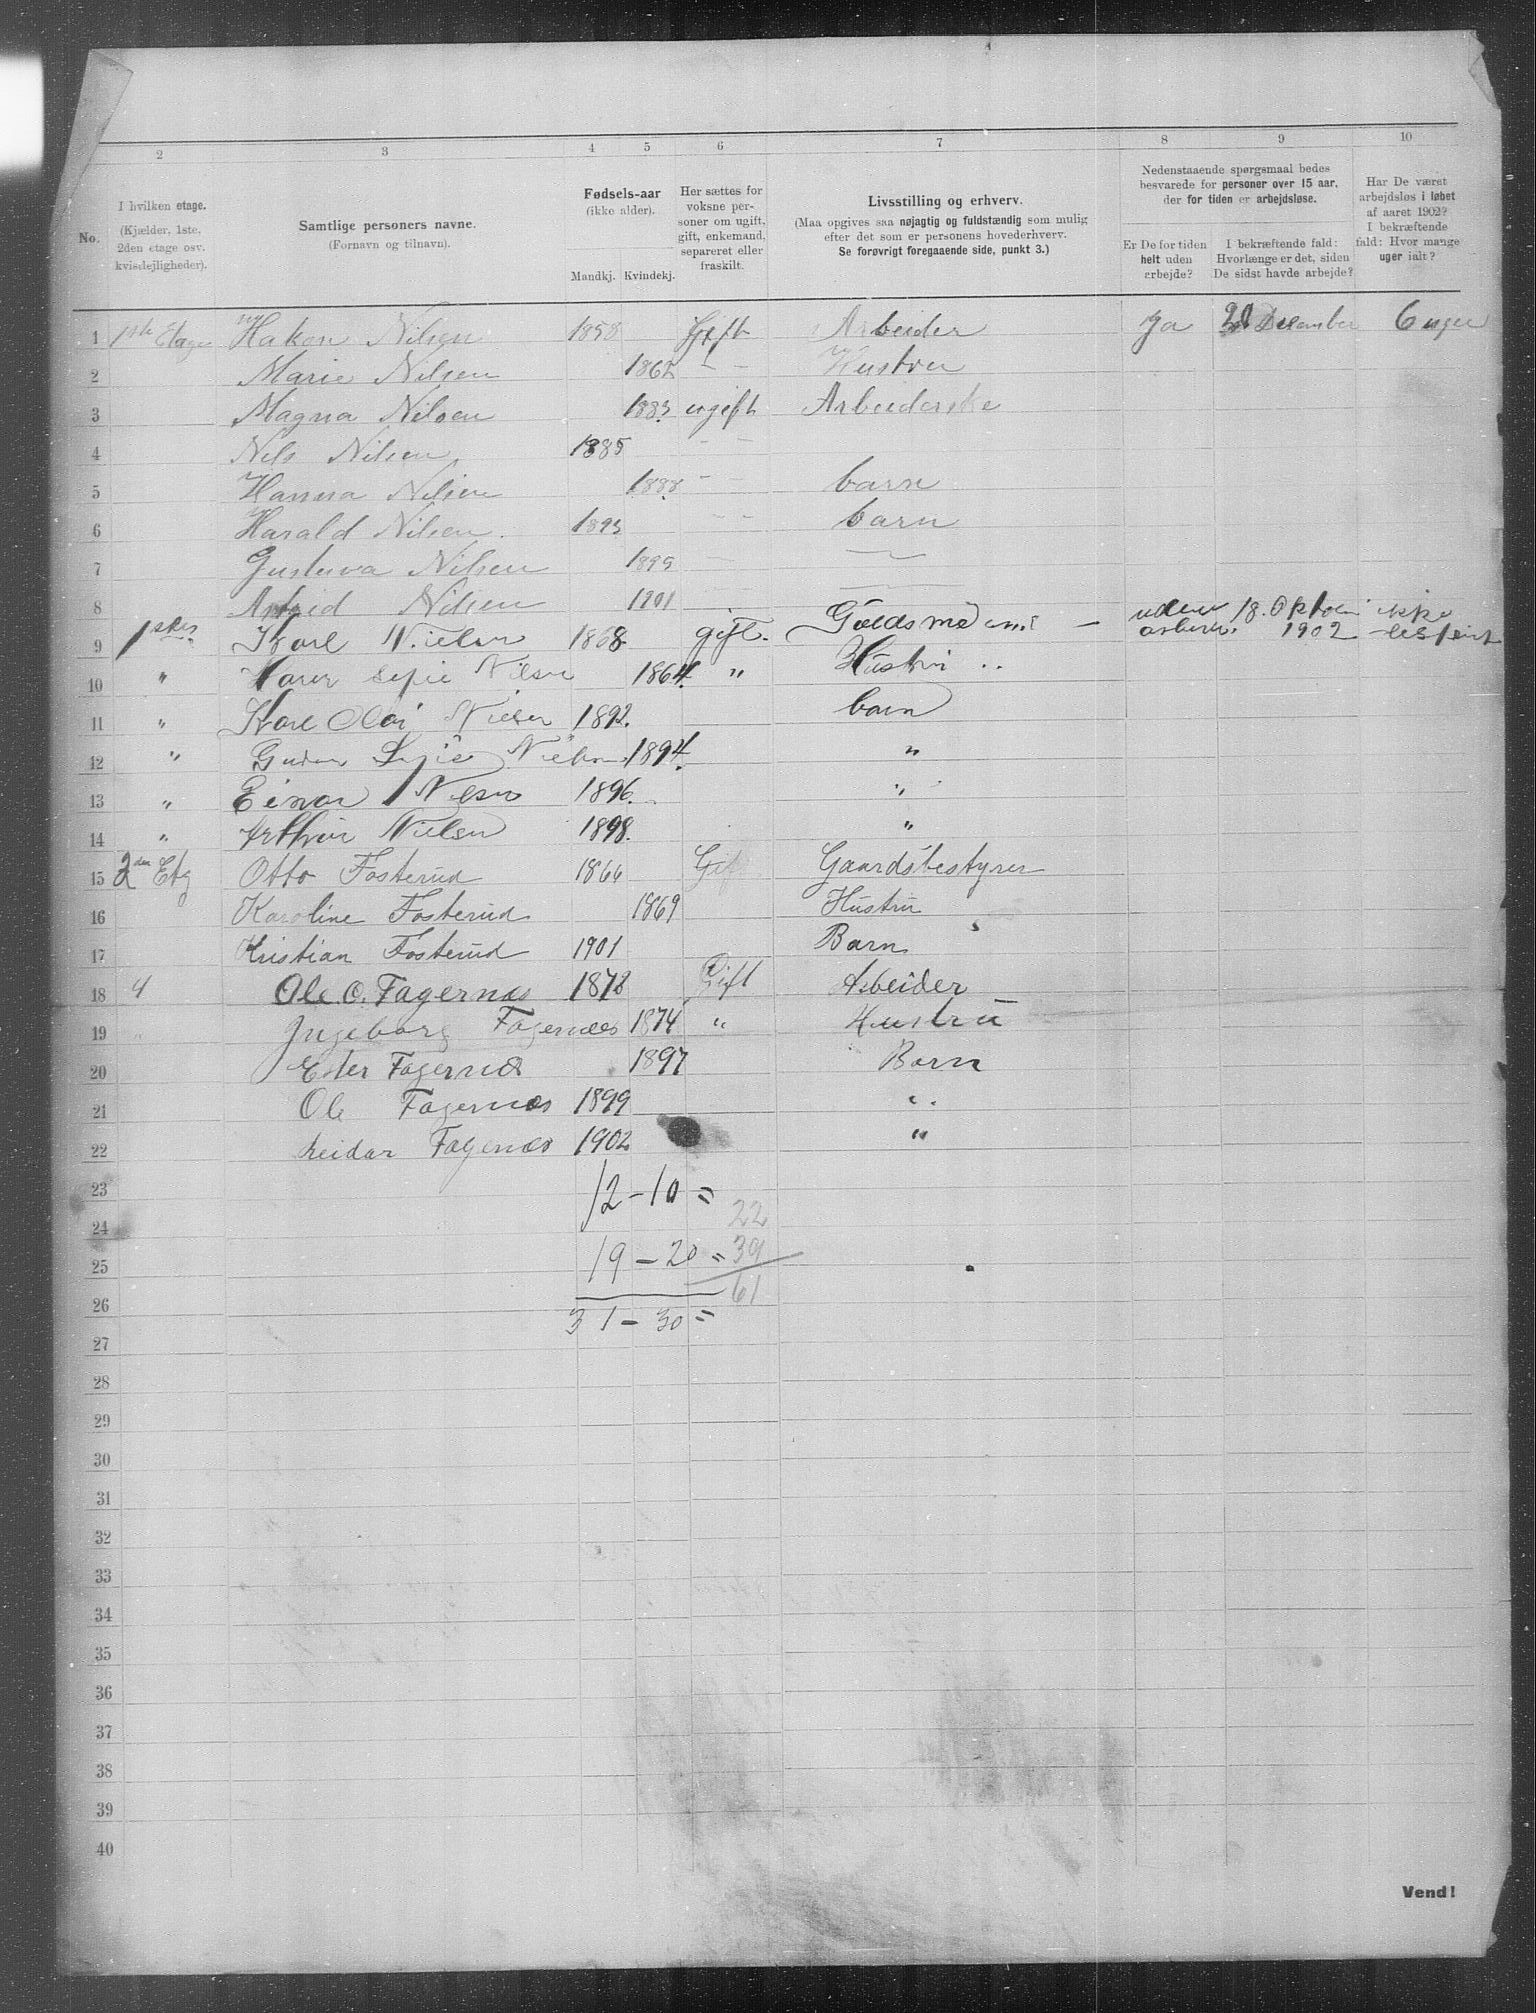 2 3 4 5 6 7 8 9 10
No.
I hvilken etage.
(Kjælder, 1ste, 2den etage osv. kvistlejligheder).
Samtlige personers navne.
(Fornavn og tilnavn).
Fødsels-aar
(ikke alder).
Mandkj. Kvindekj.
Her sættes for voksne personer om ugift, gift, enkemand, separeret eller fraskilt.
Livsstilling og erhverv.
(Maa opgives saa nøjagtig og fuldstændig som mulig efter det som er personens hovederhverv.
Se forøvrigt foregaaende side, punkt 3.)
Nedenstaaende spørgsmaal bedes besvarede for personer over 15 aar, der for tiden er arbejdsløse.
Er De for tiden helt uden arbejde?
I bekræftende fald: Hvorlænge er det, siden De sidst havde arbejde?
Har De været arbejdsløs i løbet af aaret 1902? I bekræftende fald: Hvor mange uger ialt?
1 1ste Etage Hakon Nilsen 1858 Gift Arbeider Ja December 6 uger
2 Marie Nilsen 1862 - - Hustru
3 Magna Nilsen 1883 ugift Arbeiderske
4 Nils Nilsen 1885 - -
5 Hanna Nilsen 1888 - - barn
6 Harald Nilsen 1893 - - barn
7 Gustava Nilsen 1895 —
8 Astrid Nilsen 1901
9 Karl Nielsen 1868 gift. 18. 1902
10 " Sofie Nilsen 1864 " Hustru
11 " Karl Nielsen 1892. barn
12 " Nielsen 1894. "
13 " Einar Nilsen 1896. "
14 " Arthur Nielsen 1898. "
15 2den Etg Otto Fosterud 1866 Gift Gaardsbestyrer
16 Karoline Fosterud 1869 Hustru
17 Kristian Fosterud 1901 Barn
18 4 Ole O. Fagernæs 1872 Gift Arbeider
19 " Ingeborg Fagernæs 1874 " Hustru
20 Ester Fagernæs 1897 Barn
21 Ole Fagernæs 1899 "
22 Reidar Fagernæs 1902 "
23 12 - 10 =
24 22
25 19 - 20 = 39
26 61
31 - 30 =
27
28
29
30
31
32
33
34
35
36
37
38
39
40
Vend!